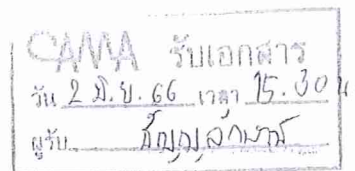 CAMA รับเอกสาร
วัน 2 มิ.ย. 66 เวลา 15.30 น
ผู้รับ ธัญญลักษณ์